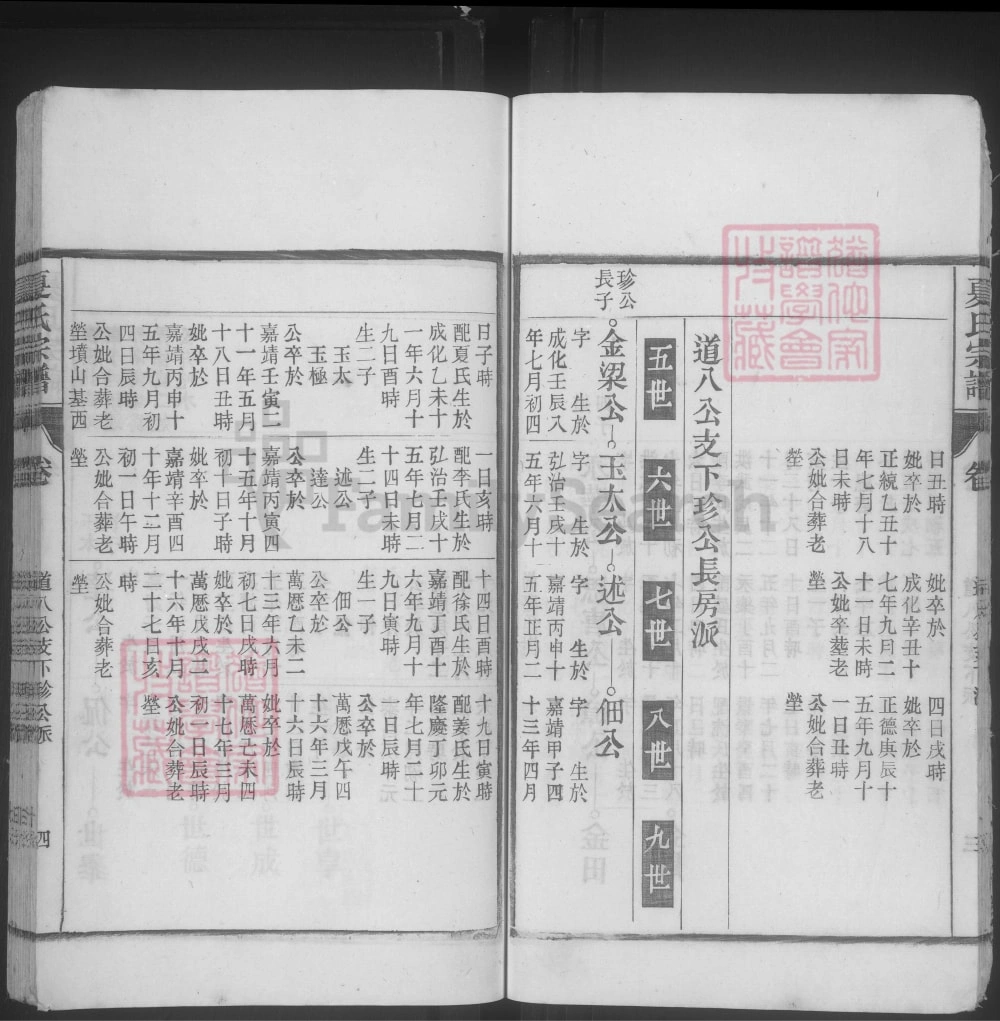 夏氏宗譜
卷
三
日丑時
妣卒於
正統乙丑十
年七月十八
日未時
公妣合葬老
塋
妣卒於
成化辛丑十
七年九月二
十日未時
公妣卒墓老
塋
四日戌時
妣卒於
正德庚辰十
五年九月十
一日丑時
公妣合葬老
塋
道八公支下珍公長房派
五世 六世 七世 八世 九世
珍公
長子
金梁公 玉太公 述公 佃公
字 生於
成化壬辰八
年七月初四
字 生於
弘治壬戌十
五年六月十
字 生於
嘉靖丙申十
五年正月二
字 生於
嘉靖甲子四
十三年四月
日子時
配夏氏生於
成化乙未十
一年六月十
九日酉時
生二子
玉太
玉極
公卒於
嘉靖壬寅二
十一年五月
十八日丑時
妣卒於
嘉靖丙申十
五年九月初
四日辰時
公妣合葬老
塋墳山基西
一日亥時
配李氏生於
弘治壬戌十
五年七月二
十四日未時
生二子
述公
達公
公卒於
嘉靖丙寅四
十五年十月
初十日子時
妣卒於
嘉靖辛酉四
十年十二月
初一日午時
公妣合葬老
塋
十四日酉時
配徐氏生於
嘉靖丁酉十
六年九月十
九日寅時
生一子
佃公
公卒於
萬厯乙未二
十三年六月
初七日戌時
妣卒於
萬厯戊戌二
十六年十月
二十七日亥
時
公妣合葬老
塋
十九日寅時
配姜氏生於
隆慶丁卯元
年七月二十
一日辰時
公卒於
萬厯戊午四
十六年三月
十六日辰時
妣卒於
萬厯己未四
十七年三月
初一日辰時
公妣合葬老
塋
夏氏宗譜
卷
道八公支下珍公派
四